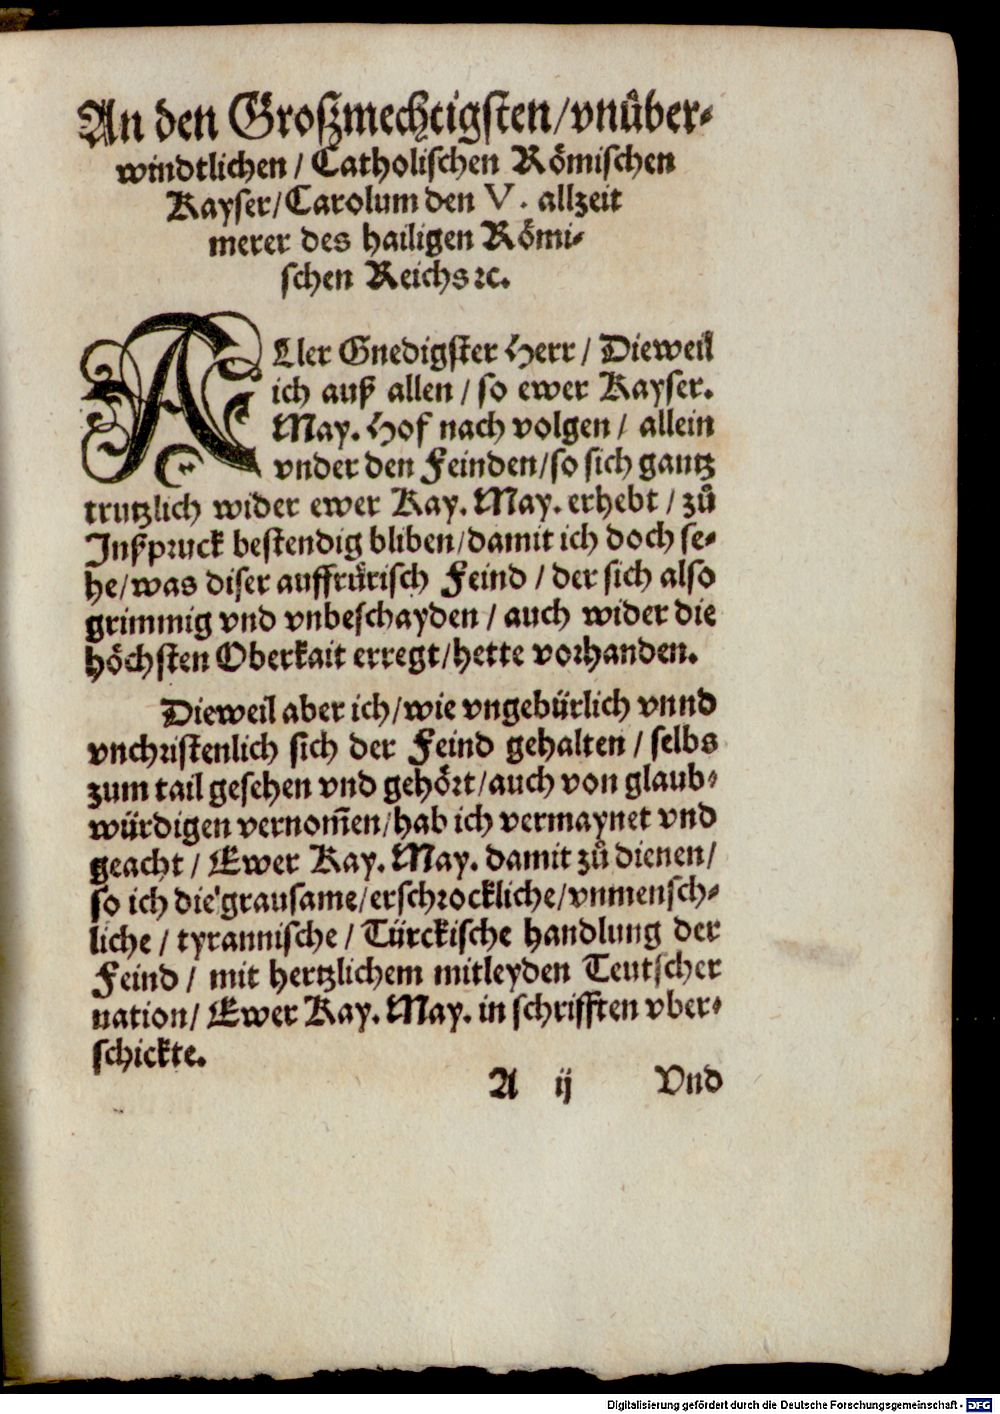 An den Großmechtigsten/vnüber-
windtlichen/ Catholischen Römischen
Kayser/Carolum den V. allzeit
merer des hailigen Römi-
schen Reichs ꝛc.
ALler Gnedigster Herr/ Dieweil
ich auß allen/ so ewer Kayser.
May. Hof nach volgen/ allein
vnder den Feinden/so sich gantz
trutzlich wider ewer Kay. May. erhebt/ zů
Inßpruck bestendig bliben/damit ich doch se-
he/was diser auffrůrisch Feind/ der sich also
grimmig vnd vnbeschayden/ auch wider die
höchsten Oberkait erregt/hette vorhanden.
Dieweil aber ich/wie vngebürlich vnnd
vnchristenlich sich der Feind gehalten/ selbs
zum tail gesehen vnd gehört/auch von glaub-
würdigen vernom̃en/hab ich vermaynet vnd
geacht/ Ewer Kay. May. damit zů dienen/
so ich die grausame/erschrockliche/vnmensch-
liche/ tyrannische/ Türckische handlung der
Feind/ mit hertzlichem mitleyden Teutscher
nation/ Ewer Kay. May. in schrifften vber-
schickte.
A ij Vnd
Digitalisierung gefördert durch die Deutsche Forschungsgemeinschaft - DFG